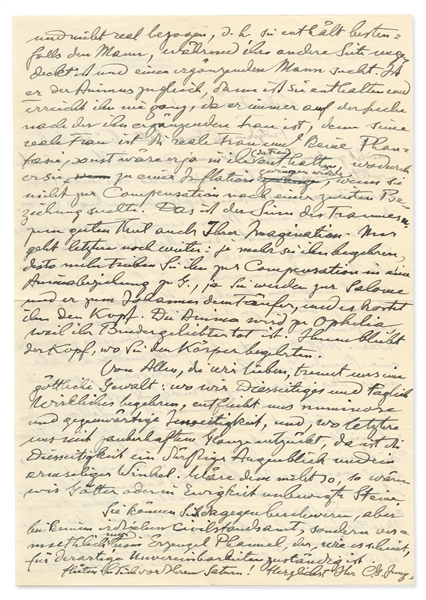 und nicht real bezogen, d. h. sie enthält besten-
falls den Mann, während ihre andere Seite unge-
deckt ist und einen ergänzenden Mann sucht. Ist
er der Animus zugleich, dann ist sie enthalten und
erreicht ihn nie ganz, da er immer auf der Suche
nach der ihn ergänzenden Frau ist, denn seine
reale Frau ist die reale Frau und keine Phan-
tasie, sonst wäre er ja in ihr enthalten, wodurch
er sie zu einer Inflation zwingen würde, wenn sie
nicht zur Compensation nach einer zweiten Be-
ziehung suchte. Das ist der Sinn des Traumes u.
zum guten Theil auch Ihrer Imagination. Nur
geht letztere noch weiter: je mehr sie ihn begehren,
desto mehr treiben Sie ihn zur Compensation in eine
Animabeziehung zu G., ja Sie werden zur Salome
und er zum Johannes dem Täufer, und es kostet
ihn den Kopf. Die Anima wird zu Ophelia,
weil ihr Brudergeliebter tot ist. Ihnen bleibt
der Kopf, wo Sie den Körper begehrten.
Von Allem, die wir lieben, trennt uns eine
göttliche Gewalt: wo wir Diesseitiges und täglich
Wirkliches begehren, entflieht uns numinose
und gegenwärtige Jenseitigkeit, und, wo letztere
uns mit zauberhaftem Glanze entzückt, da ist die
Diesseitigkeit ein dürftiger Augenblick und ein
armseliger Winkel. Wäre dem nicht so, so wären
wir Götter oder in Ewigkeit unbewegte Steine.
Sie können Sich dagegen beschweren, aber
bei keinem irdischen Civilstandsamt, sondern
nur beim Erzengel der, wie es scheint,
für derartige Unvereinbarkeiten zuständig ist.
Hüten Sie Sich vor Ihrem Saturn! Herzlichst Ihr C.G. Jung.